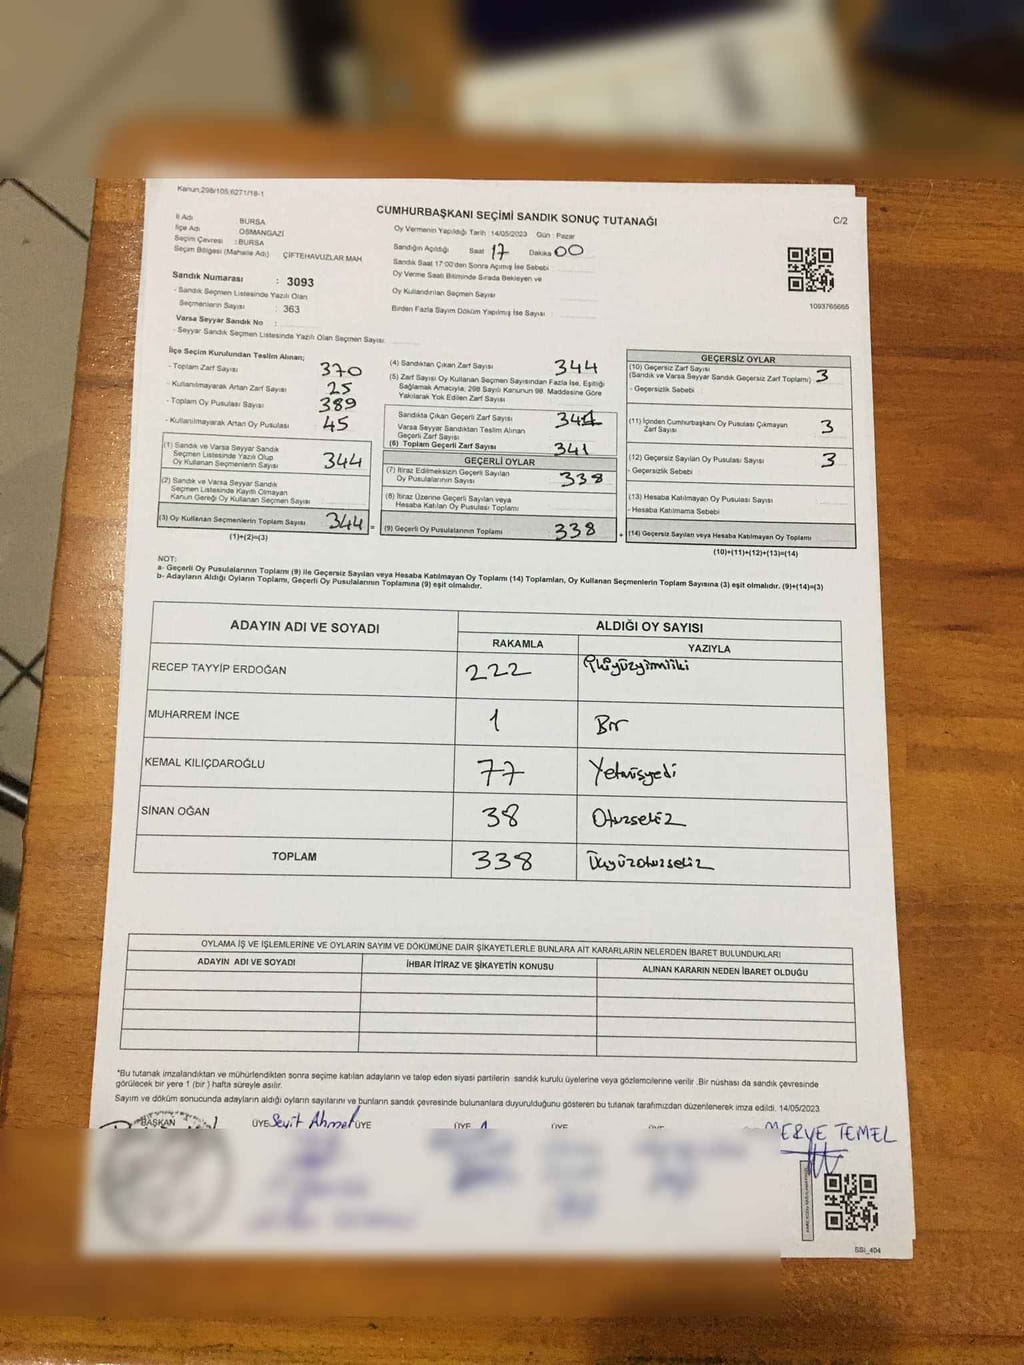 Kanun,298/105,6271/18-1
CUMHURBAŞKANI SEÇİMİ SANDIK SONUÇ TUTANAĞI
C/2
İl Adı BURSA
İlçe Adı OSMANGAZİ
Seçim Çevresi : BURSA
Seçim Bölgesi (Mahalle Adı) ÇİFTEHAVUZLAR MAH
Oy Vermenin Yapıldığı Tarih :14/05/2023 Gün : Pazar
Sandığın Açıldığı Saat 17 Dakika 00
Sandık Saat 17:00'den Sonra Açılmış İse Sebebi
Oy Verme Saati Bitiminde Sırada Bekleyen ve
Oy Kullandırılan Seçmen Sayısı
Birden Fazla Sayım Döküm Yapılmış İse Sayısı :
1093765665
Sandık Numarası : 3093
- Sandık Seçmen Listesinde Yazılı Olan
Seçmenlerin Sayısı : 363
Varsa Seyyar Sandık No :
- Seyyar Sandık Seçmen Listesinde Yazılı Olan Seçmen Sayısı:
İlçe Seçim Kurulundan Teslim Alınan;
- Toplam Zarf Sayısı 370
- Kullanılmayarak Artan Zarf Sayısı 25
- Toplam Oy Pusulası Sayısı 389
- Kullanılmayarak Artan Oy Pusulası 45
(1) Sandık ve Varsa Seyyar Sandık
Seçmen Listesinde Yazılı Olup
Oy Kullanan Seçmenlerin Sayısı 344
(2) Sandık ve Varsa Seyyar Sandık
Seçmen Listesinde Kayıtlı Olmayan
Kanun Gereği Oy Kullanan Seçmen Sayısı
(3) Oy Kullanan Seçmenlerin Toplam Sayısı 344 =
(1)+(2)=(3)
(4) Sandıktan Çıkan Zarf Sayısı 344
(5) Zarf Sayısı Oy Kullanan Seçmen Sayısından Fazla İse, Eşitliği
Sağlamak Amacıyla, 298 Sayılı Kanunun 98. Maddesine Göre
Yakılarak Yok Edilen Zarf Sayısı
Sandıkta Çıkan Geçerli Zarf Sayısı 341
Varsa Seyyar Sandıktan Teslim Alınan
Geçerli Zarf Sayısı
(6) Toplam Geçerli Zarf Sayısı 341
GEÇERLİ OYLAR
(7) İtiraz Edilmeksizin Geçerli Sayılan
Oy Pusulalarının Sayısı 338
(8) İtiraz Üzerine Geçerli Sayılan veya
Hesaba Katılan Oy Pusulası Toplamı
(9) Geçerli Oy Pusulalarının Toplamı 338 +
GEÇERSİZ OYLAR
(10) Geçersiz Zarf Sayısı
(Sandık ve Varsa Seyyar Sandık Geçersiz Zarf Toplamı) 3
- Geçersizlik Sebebi
(11) İçinden Cumhurbaşkanı Oy Pusulası Çıkmayan
Zarf Sayısı 3
(12) Geçersiz Sayılan Oy Pusulası Sayısı 3
- Geçersizlik Sebebi
(13) Hesaba Katılmayan Oy Pusulası Sayısı
- Hesaba Katılmama Sebebi
(14) Geçersiz Sayılan veya Hesaba Katılmayan Oy Toplamı
(10)+(11)+(12)+(13)=(14)
NOT:
a- Geçerli Oy Pusulalarının Toplamı (9) ile Geçersiz Sayılan veya Hesaba Katılmayan Oy Toplamı (14) Toplamları, Oy Kullanan Seçmenlerin Toplam Sayısına (3) eşit olmalıdır. (9)+(14)=(3)
b- Adayların Aldığı Oyların Toplamı, Geçerli Oy Pusulalarının Toplamına (9) eşit olmalıdır.
ADAYIN ADI VE SOYADI ALDIĞI OY SAYISI
RAKAMLA YAZIYLA
RECEP TAYYİP ERDOĞAN 222 İkiyüzyirmiiki
MUHARREM İNCE 1 Bir
KEMAL KILIÇDAROĞLU 77 Yetmişyedi
SİNAN OĞAN 38 Otuzsekiz
TOPLAM 338 Üçyüzotuzsekiz
OYLAMA İŞ VE İŞLEMLERİNE VE OYLARIN SAYIM VE DÖKÜMÜNE DAİR ŞİKAYETLERLE BUNLARA AİT KARARLARIN NELERDEN İBARET BULUNDUKLARI
ADAYIN ADI VE SOYADI İHBAR İTİRAZ VE ŞİKAYETİN KONUSU ALINAN KARARIN NEDEN İBARET OLDUĞU
"Bu tutanak imzalandıktan ve mühürlendikten sonra seçime katılan adayların ve talep eden siyasi partilerin sandık kurulu üyelerine veya gözlemcilerine verilir. Bir nüshası da sandık çevresinde
görülecek bir yere 1 (bir) hafta süreyle asılır.
Sayım ve döküm sonucunda adayların aldığı oyların sayılarını ve bunların sandık çevresinde bulunanlara duyurulduğunu gösteren bu tutanak tarafımızdan düzenlenerek imza edildi. 14/05/2023
BAŞKAN ÜYE Seyit Ahmet ÜYE ÜYE ÜYE MERVE TEMEL
SSI_404